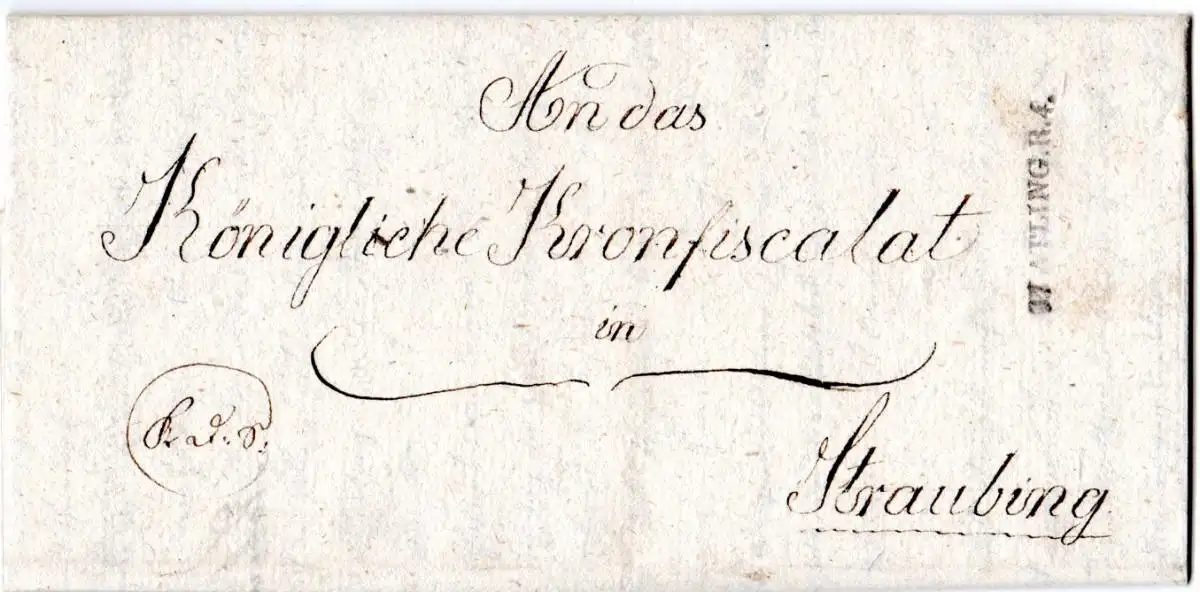 An das
Königliche Kronfiscalat
in
Straubing
K. d. S.
AULING.R.4.